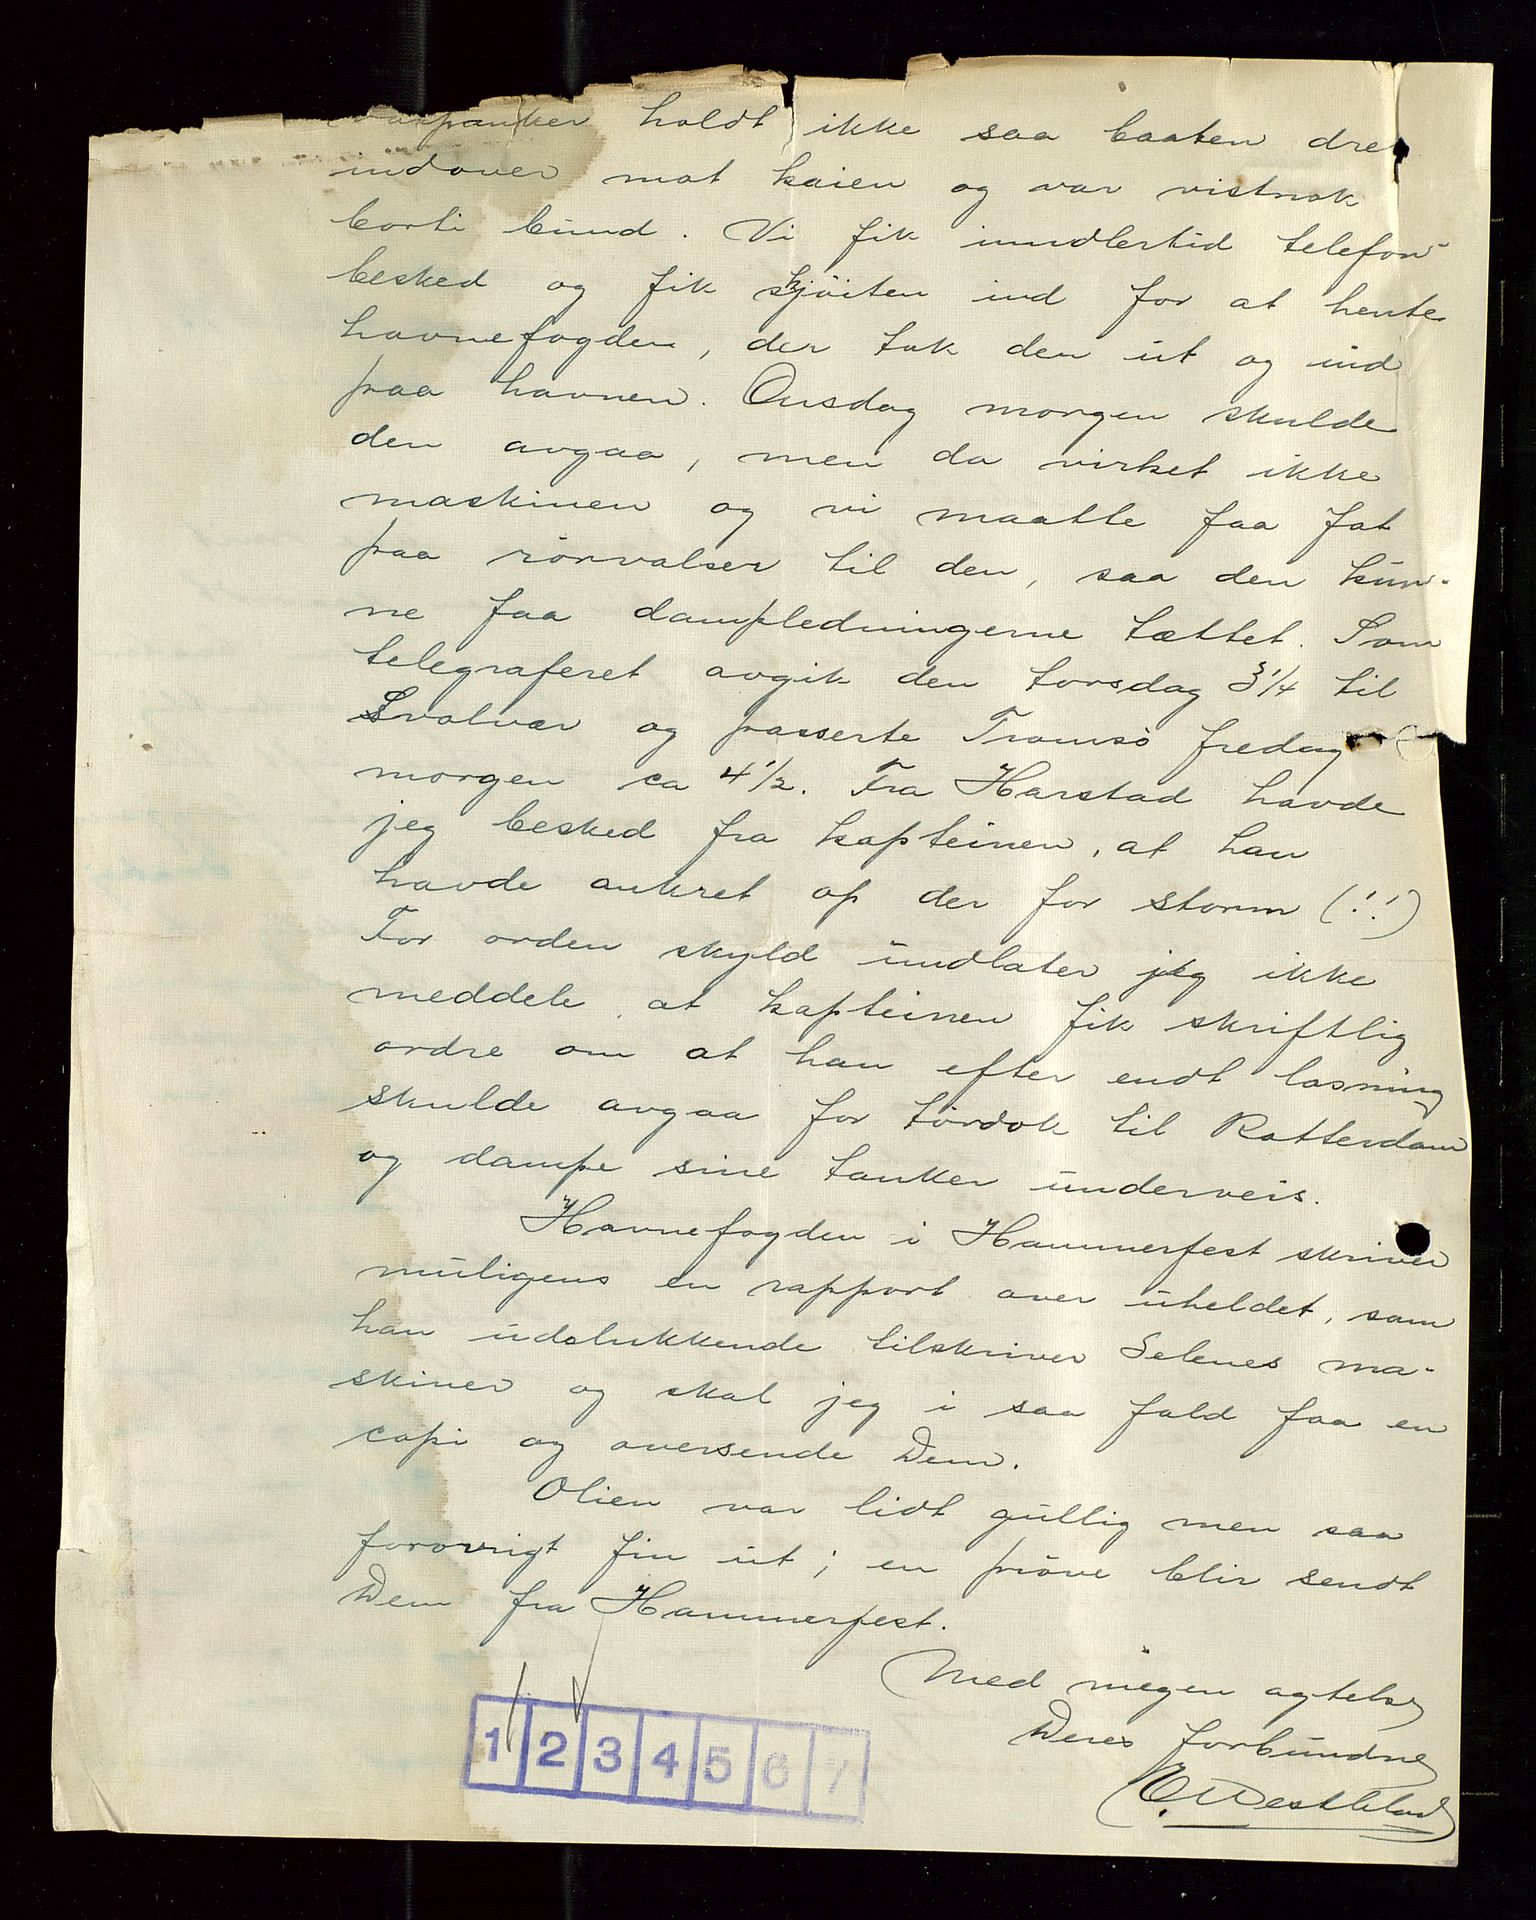 holdt ikke saa baaten drev
indover mot kaien og var vistnok
borti bund. Vi fik imidlertid telefon-
besked og fik skjöiten ind for at hente
havnefogden, der tok den ut og ind
paa havnen. Onsdag morgen skulde
den avgaa, men da virket ikke
maskinen og vi maatte faa fat
paa rörvalser til den, saa den kun-
ne faa dampledningerne tættet. Som
telegraferet avgik den torsdag 3 1/4 til
Svolvær og passerte Tromsö fredag
morgen ca 4 1/2. Fra Harstad havde
jeg besked fra kapteinen, at han
havde ankret op der for storm (!!)
For orden skyld undlater jeg ikke
meddele at kapteinen fik skriftlig
ordre om at han efter endt losning
skulde avgaa for tördok til Rotterdam
og dampe sine tanker underveis.
Havnefogden i Hammerfest skriver
muligens en rapport over uheldet, som
han udelukkende tilskriver Selenes ma-
skiner og skal jeg i saa fald faa en
copi og oversende Dem.
Olien var lidt gullig men saa
forövrigt fin ut; en pröve blir sendt
Dem fra Hammerfest.
Med megen agtelse
Deres forbundne
1 2 3 4 5 6 7